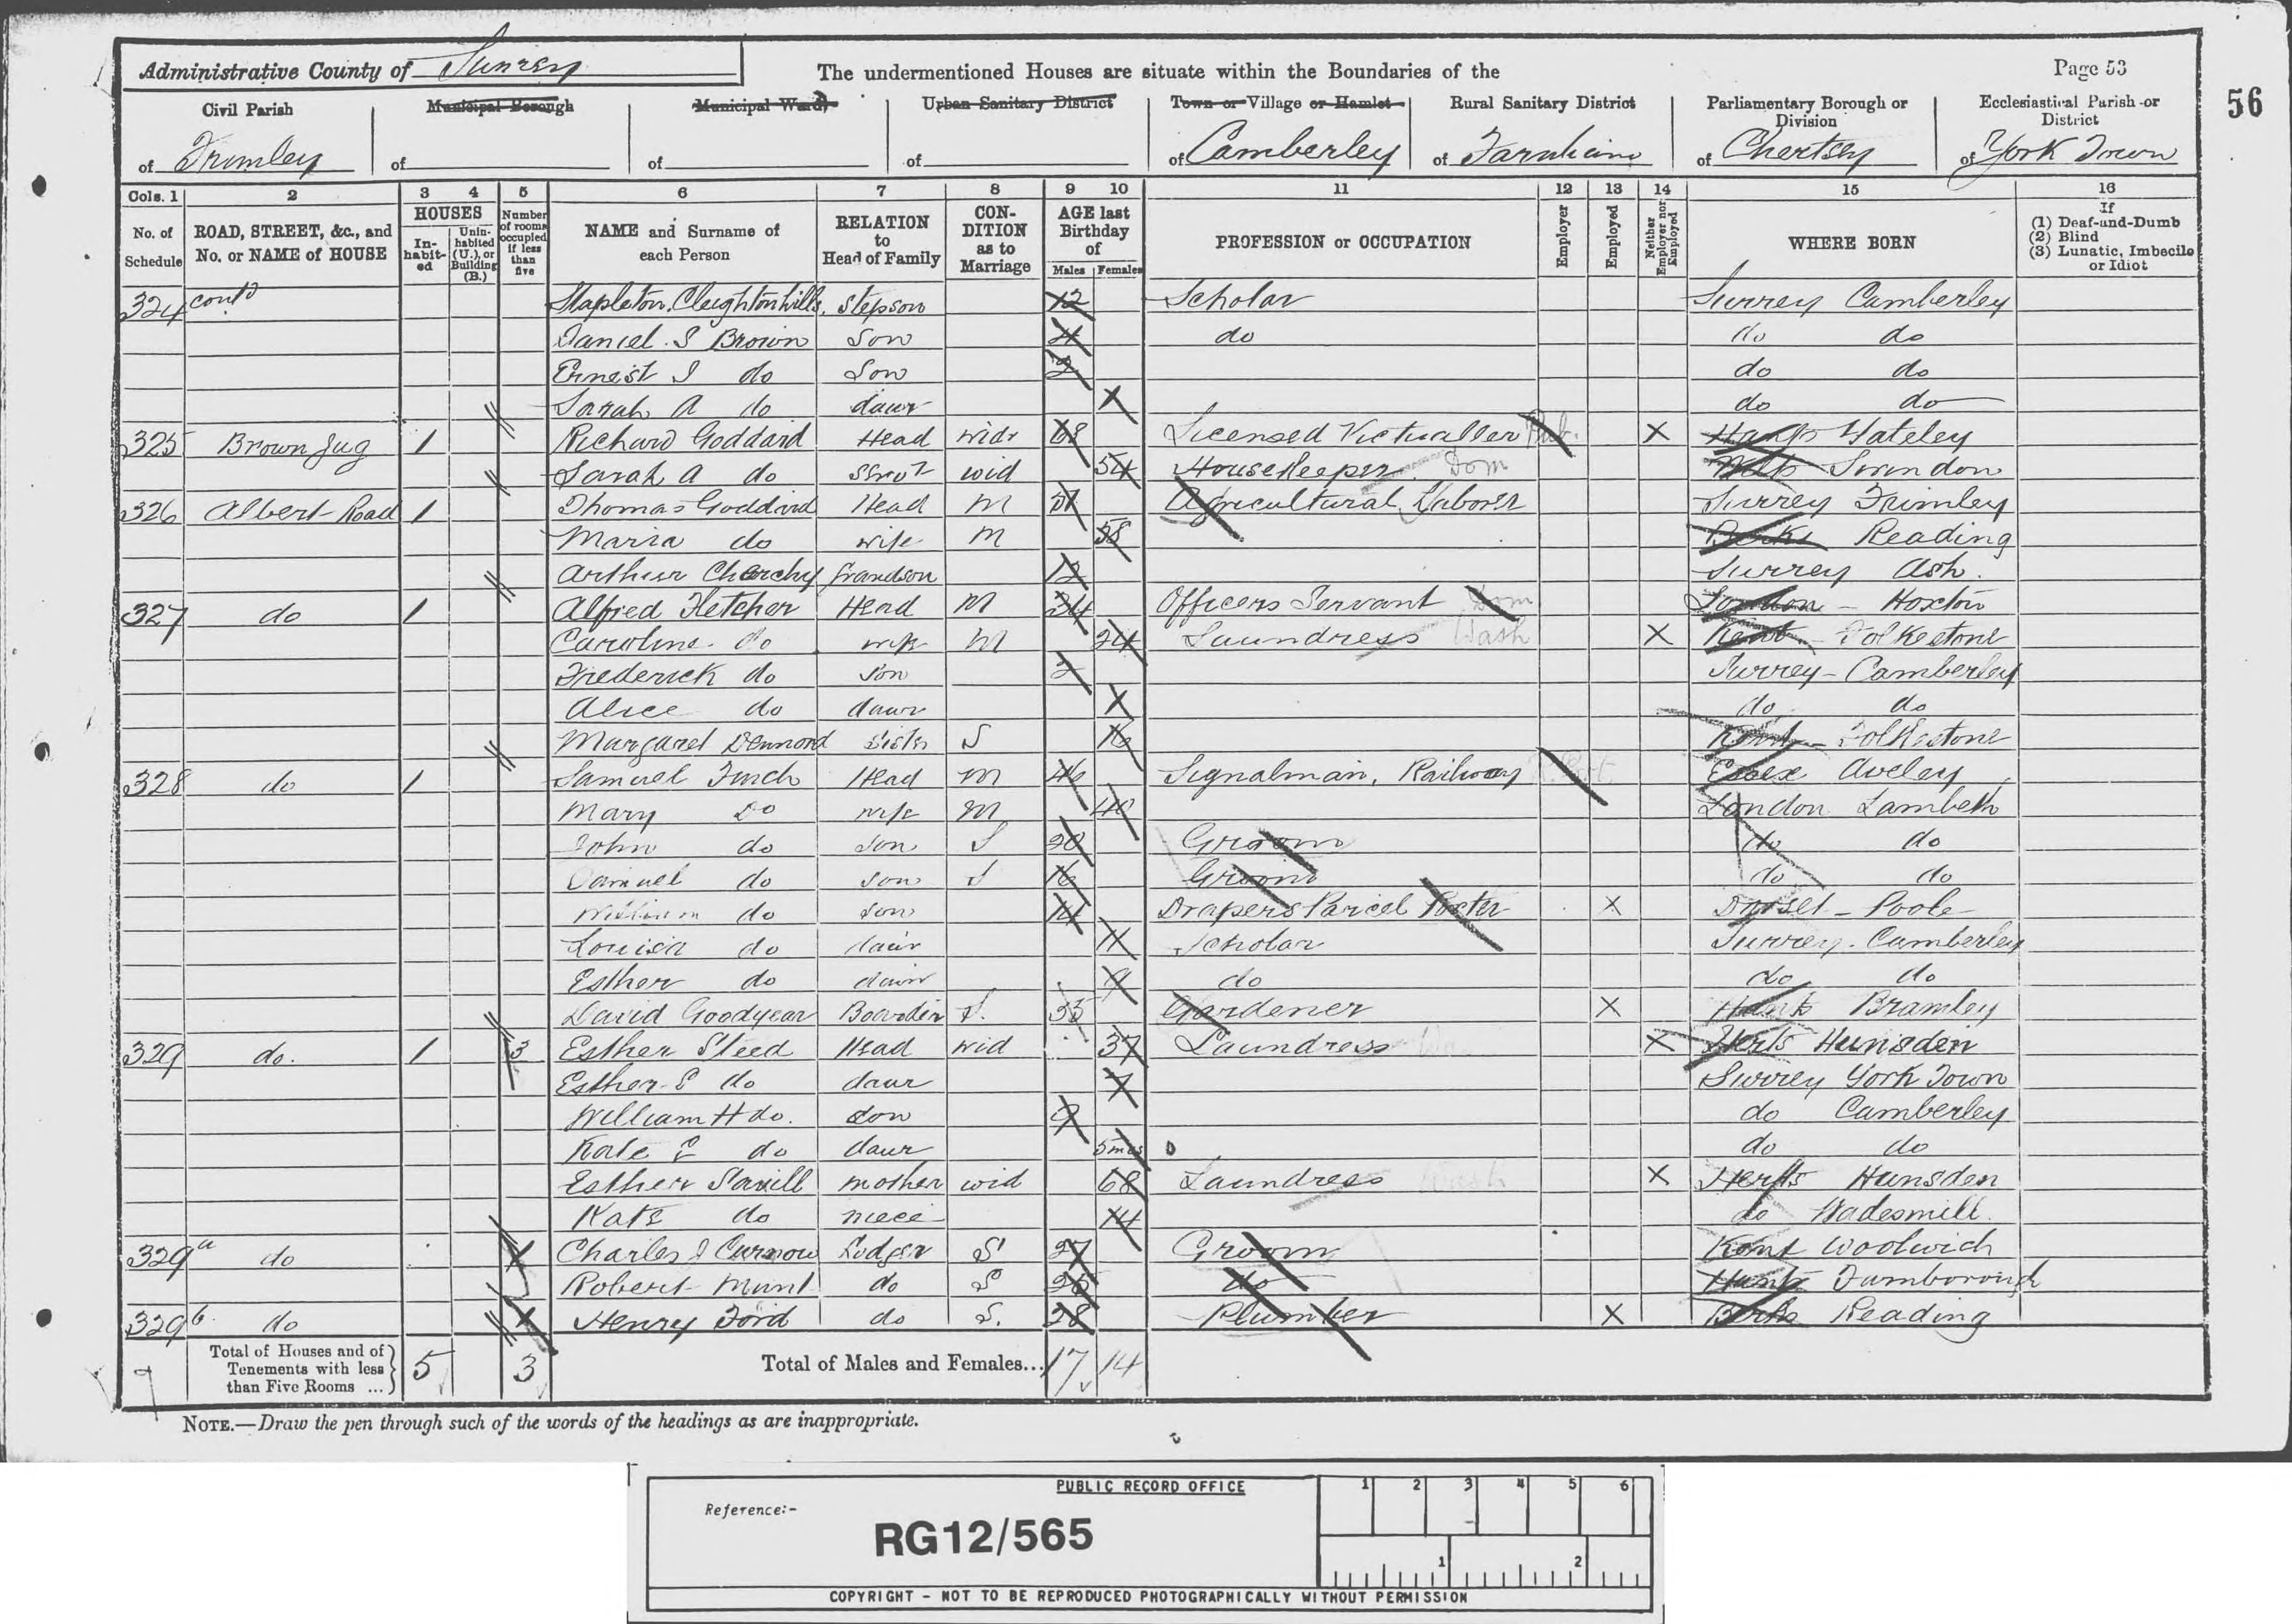 Administrative County of Surrey
The undermentioned Houses are situate within the Boundaries of the
Page 53
56
Civil Parish Municipal Borough Municipal Ward Urban Sanitary District Town or Village or Hamlet Rural Sanitary District Parliamentary Borough or Division Ecclesiastical Parish or District
of Frimley of of of of Camberley of Farnham of Chertsey of York Town
Cols. 1 2 3 4 5 6 7 8 9 10 11 12 13 14 15 16
No. of Schedule ROAD, STREET, &c., and No. or NAME of HOUSE HOUSES In-habit-ed Unin-habited (U.), or Building (B.) Number of rooms occupied if less than five NAME and Surname of each Person RELATION to Head of Family CON-DITION as to Marriage AGE last Birthday of Males Females PROFESSION or OCCUPATION Employer Employed Neither Employer nor Employed WHERE BORN If (1) Deaf-and-Dumb (2) Blind (3) Lunatic, Imbecile or Idiot
324 contd Stapleton Stepson 12 Scholar Surrey Camberley
Daniel S Brown Son 4 do do do
Ernest J do Son 2 do do
Sarah A do daur do do
325 Brown Jug 1 Richard Goddard Head widr 68 Licensed Victualler Pub. X Hants Yateley
Sarah A do Servt wid 54 Housekeeper Dom Wilts Swindon
326 Albert Road 1 Thomas Goddard Head M Agricultural Laborer Surrey Frimley
Maria do wife M 58 Berks Reading
Arthur grandson 12 Surrey Ash.
327 do 1 Alfred Fletcher Head M 34 Officers Servant Dom London - Hoxton
Caroline do wife M 24 Laundress Wash X Kent - Folkestone
Frederick do Son 2 Surrey - Camberley
Alice do daur do do
Margaret Dennord Sister S 16 Kent - Folkestone
328 do 1 Samuel Finch Head M 46 Signalman, Railway Essex Aveley
Mary Do wife M 40 London Lambeth
John do Son S 20 Groom do do
Samuel do Son S 16 Groom do do
William do Son 14 Drapers Parcel Porter X Dorset - Poole
Louisa do daur 11 Scholar Surrey - Camberley
Esther do daur 9 do do do
David Goodyear Boarder S. 35 Gardener X Hants Bramley
329 do. 1 3 Esther Steed Head wid 37 Laundress X Herts Hunsden
Esther E do daur 7 Surrey York Town
William H do. Son 2 do Camberley
Kate E do daur 5mos do do
Esther Savill mother wid 68 Laundress Wash X Herts Hunsden
Kate do niece 14 do Wadesmill
329a do Charles J Curnow Lodger S 27 Groom Kent Woolwich
Robert Munt do S 25 do Hants Farnborough
329b. do Henry Ford do S. 28 Plumber X Berks Reading
Total of Houses and of Tenements with less than Five Rooms ... 5 3 Total of Males and Females... 17 14
NOTE.—Draw the pen through such of the words of the headings as are inappropriate.
PUBLIC RECORD OFFICE
1 2 3 4 5 6
Reference:-
RG12/565
1 2
COPYRIGHT - NOT TO BE REPRODUCED PHOTOGRAPHICALLY WITHOUT PERMISSION